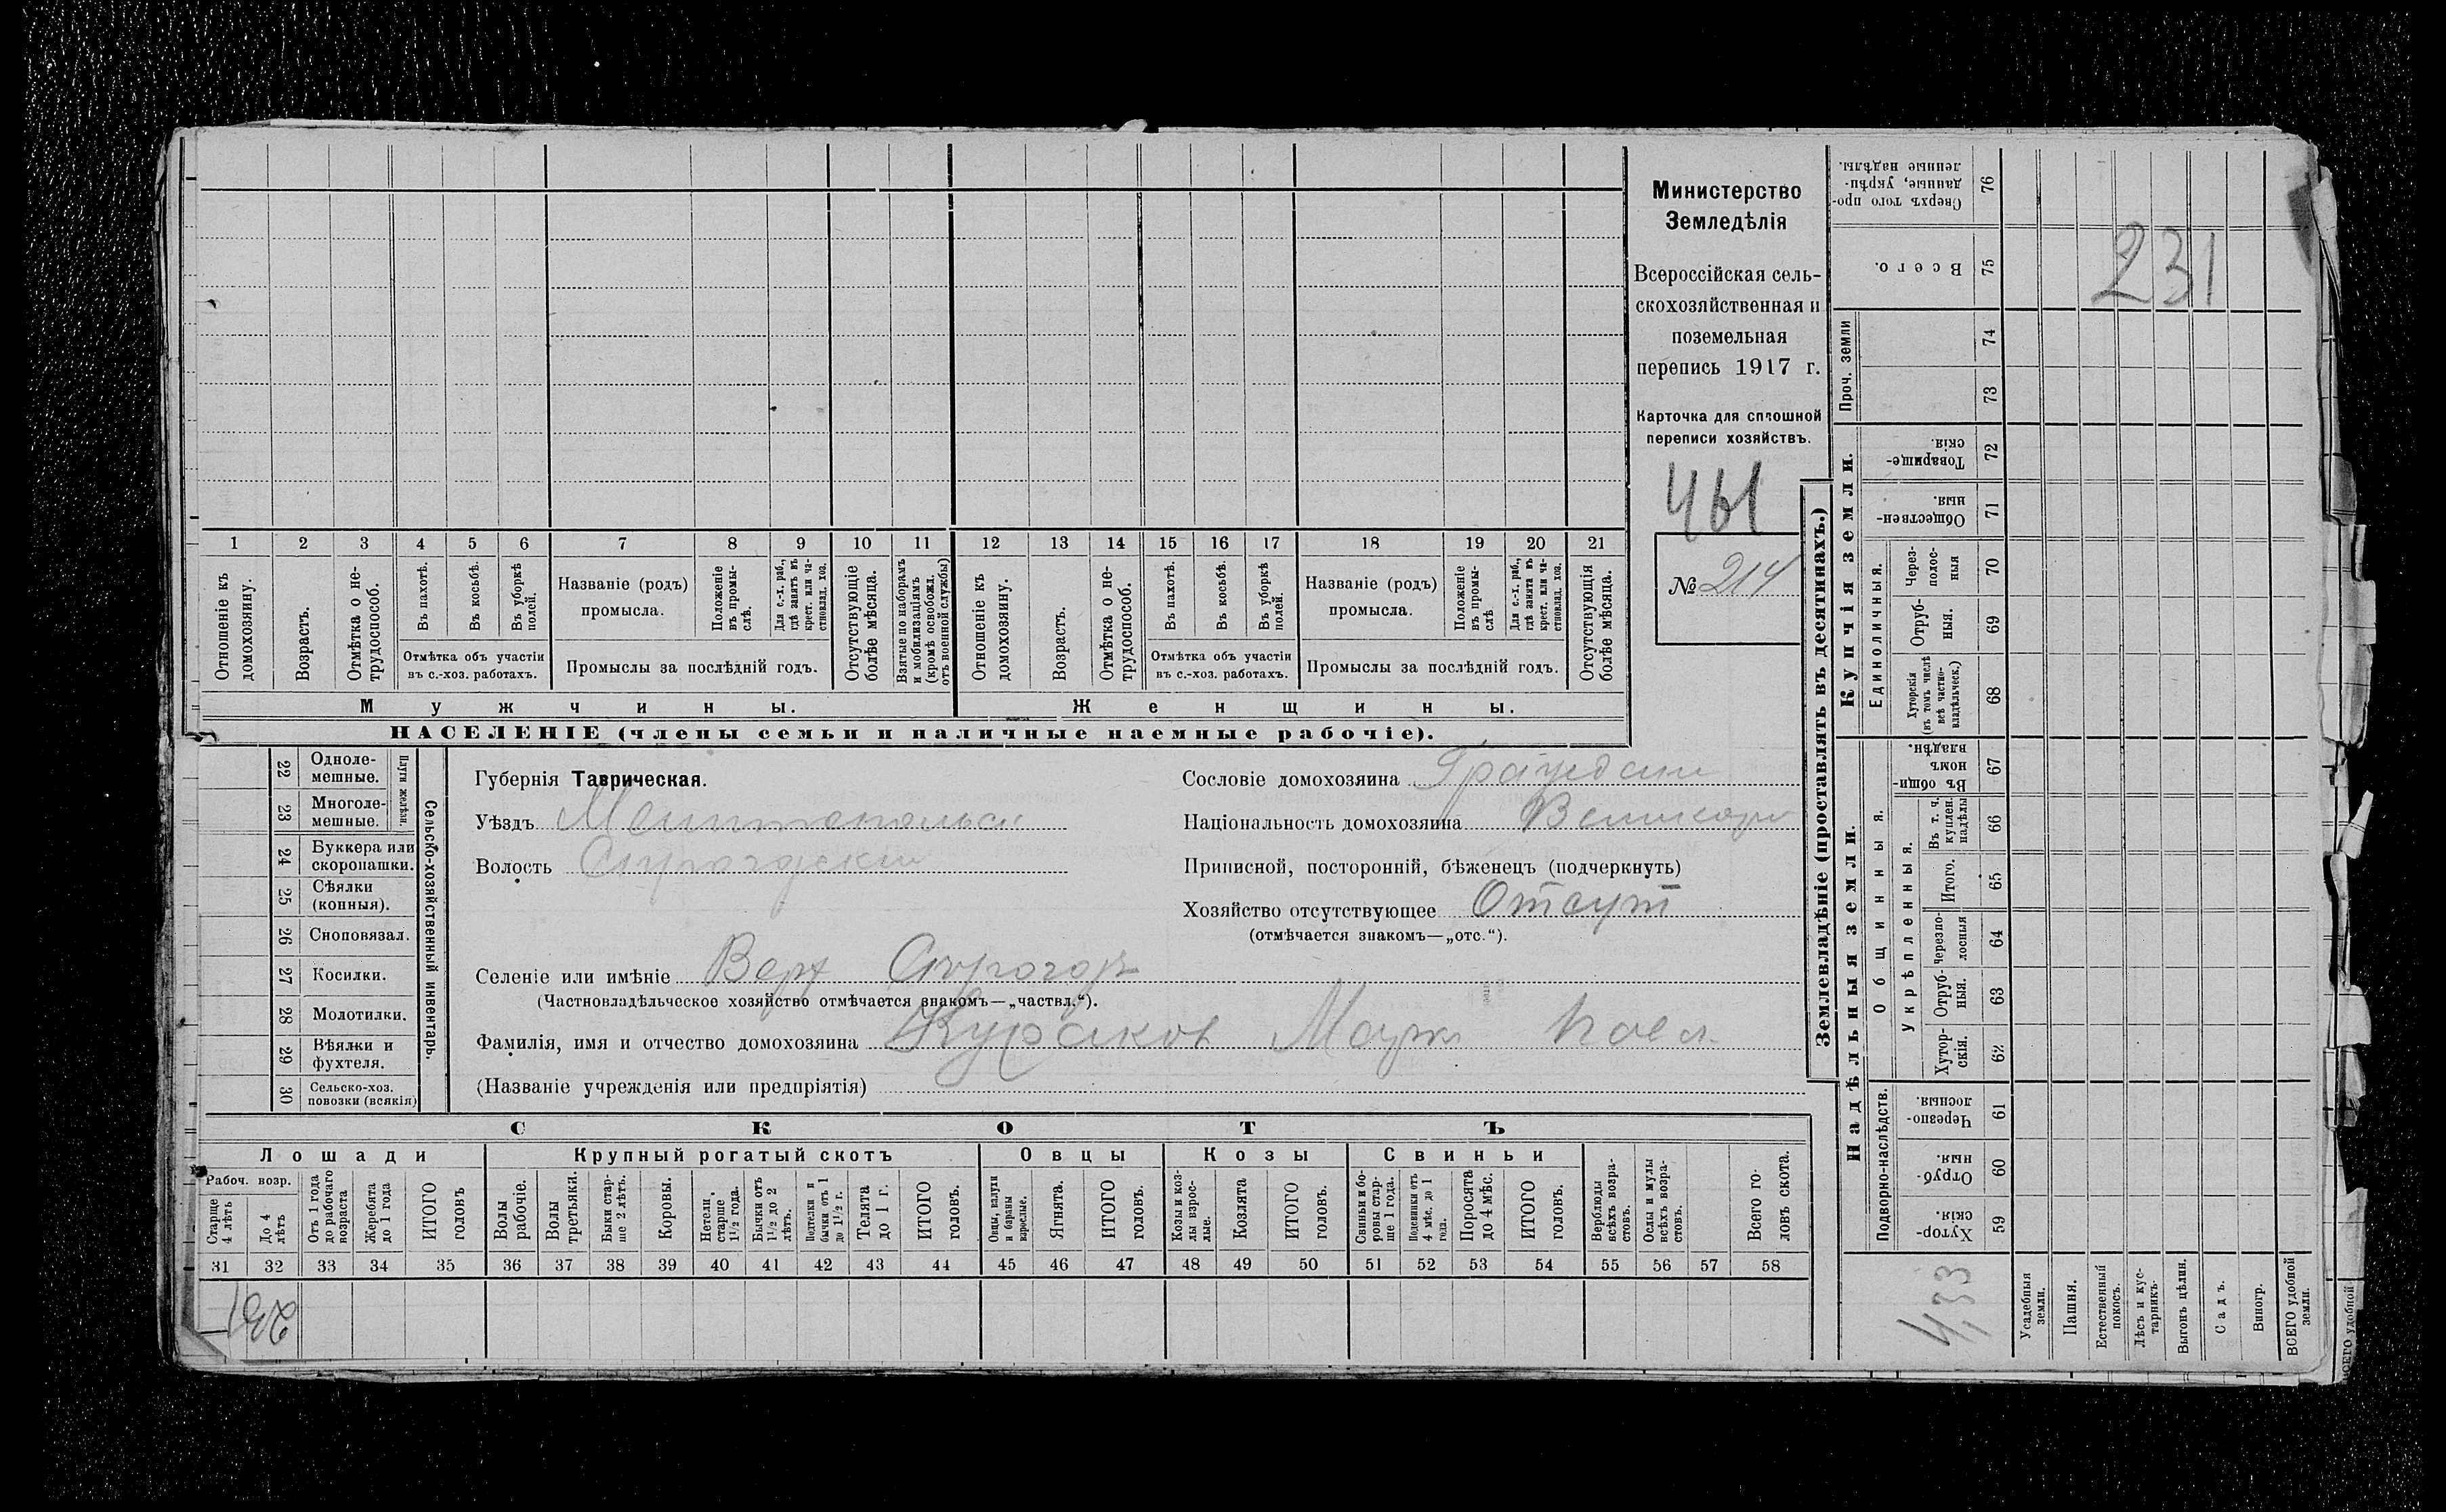 Министерство
Земледѣлія
Всероссійская сель-
скохозяйственная и
поземельная
перепись 1917 г.
Карточка для сплошной
переписи хозяйствъ.
№ 214
1 2 3 4 5 6 7 8 9 10 11 12 13 14 15 16 17 18 19 20 21
Отношеніе къ домохозяину.
Возрастъ.
Отмѣтка о не-трудоспособ.
Въ пахотѣ.
Въ косьбѣ.
Въ уборкѣ полей.
Отмѣтка объ участіи
въ с.-хоз. работахъ.
Названіе (родъ)
промысла.
Положеніе въ промы-слѣ.
Для с.-х. раб., гдѣ занятъ въ крест. или ча-стновлад. хоз.
Промыслы за послѣдній годъ.
Отсутствующіе болѣе мѣсяца.
Взятые по наборамъ и мобилизаціямъ (кромѣ освобожд. отъ военной службы)
Отношеніе къ домохозяину.
Возрастъ.
Отмѣтка о не-трудоспособ.
Въ пахотѣ.
Въ косьбѣ.
Въ уборкѣ полей.
Отмѣтка объ участіи
въ с.-хоз. работахъ.
Названіе (родъ)
промысла.
Положеніе въ промы-слѣ
Для с.-х. раб., гдѣ занята въ крест. или ча-стновлад. хоз.
Промыслы за послѣдній годъ.
Отсутствующія болѣе мѣсяца.
Мужчины. Женщины.
НАСЕЛЕНІЕ (члены семьи и наличные наемные рабочіе).
Сельско-хозяйственный инвентарь.
Плуги желѣзн.
22 Одноле-мешные.
23 Многоле-мешные.
24 Буккера или скоропашки.
25 Сѣялки (конныя).
26 Сноповязал.
27 Косилки.
28 Молотилки.
29 Вѣялки и фухтеля.
30 Сельско-хоз. повозки (всякія)
Губернія Таврическая.
Уѣздъ Мелитопольск
Волость
Сословіе домохозяина Граждани
Національность домохозяина
Приписной, посторонній, бѣженецъ (подчеркнуть)
Хозяйство отсутствующее Отсут
(отмѣчается знакомъ—„отс.“).
Селеніе или имѣніе Верх
(Частновладѣльческое хозяйство отмѣчается знакомъ—„частвл.“).
Фамилія, имя и отчество домохозяина
(Названіе учрежденія или предпріятія)
СКОТЪ
Лошади Крупный рогатый скотъ Овцы Козы Свиньи
Рабоч. возр.
Старше 4 лѣтъ
До 4 лѣтъ
Отъ 1 года до рабочаго возраста
Жеребята до 1 года
ИТОГО головъ
Волы рабочіе.
Волы третьяки.
Быки стар-ше 2 лѣтъ.
Коровы.
Нетели старше 1½ года.
Бычки отъ 1½ до 2 лѣтъ.
Подтелки и бычки отъ 1 до 1½ г.
Телята до 1 г.
ИТОГО головъ.
Овцы, валухи и бараны взрослые.
Ягнята.
ИТОГО головъ.
Козы и коз-лы взрос-лые.
Козлята
ИТОГО головъ.
Свиньи и бо-ровы стар-ше 1 года.
Подсвинки отъ 4 мѣс. до 1 года.
Поросята до 4 мѣс.
ИТОГО головъ.
Верблюды всѣхъ возра-стовъ.
Ослы и мулы всѣхъ возра-стовъ.
Всего го-ловъ скота.
31 32 33 34 35 36 37 38 39 40 41 42 43 44 45 46 47 48 49 50 51 52 53 54 55 56 57 58
231
Землевладѣніе (проставлять въ десятинахъ.)
Купчія земли.
Надѣльныя земли.
Проч. земли
Единоличныя.
Общинныя.
Укрѣпленныя.
Подворно-наслѣдств.
76 Сверхъ того про-данные, укрѣп-ленные надѣлы.
75 Всего.
74
73
72 Товарище-скія.
71 Обществен-ныя.
70 Через-полос-ныя
69 Отруб-ныя.
68 Хуторскія (въ томъ числѣ всѣ частно-владѣльческ.)
67 Въ общи-номъ владѣн.
66 Въ т. ч. куплен. надѣлы
65 Итого.
64 Черезпо-лосныя
63 Отруб-ныя.
62 Хутор-скія.
61 Черезпо-лосныя.
60 Отруб-ныя.
59 Хутор-скія.
231
Усадебныя земли.
Пашня.
Естественный покосъ.
Лѣсъ и кус-тарникъ
Выгонъ цѣлин.
Садъ.
Виногр.
ВСЕГО удобной земли.